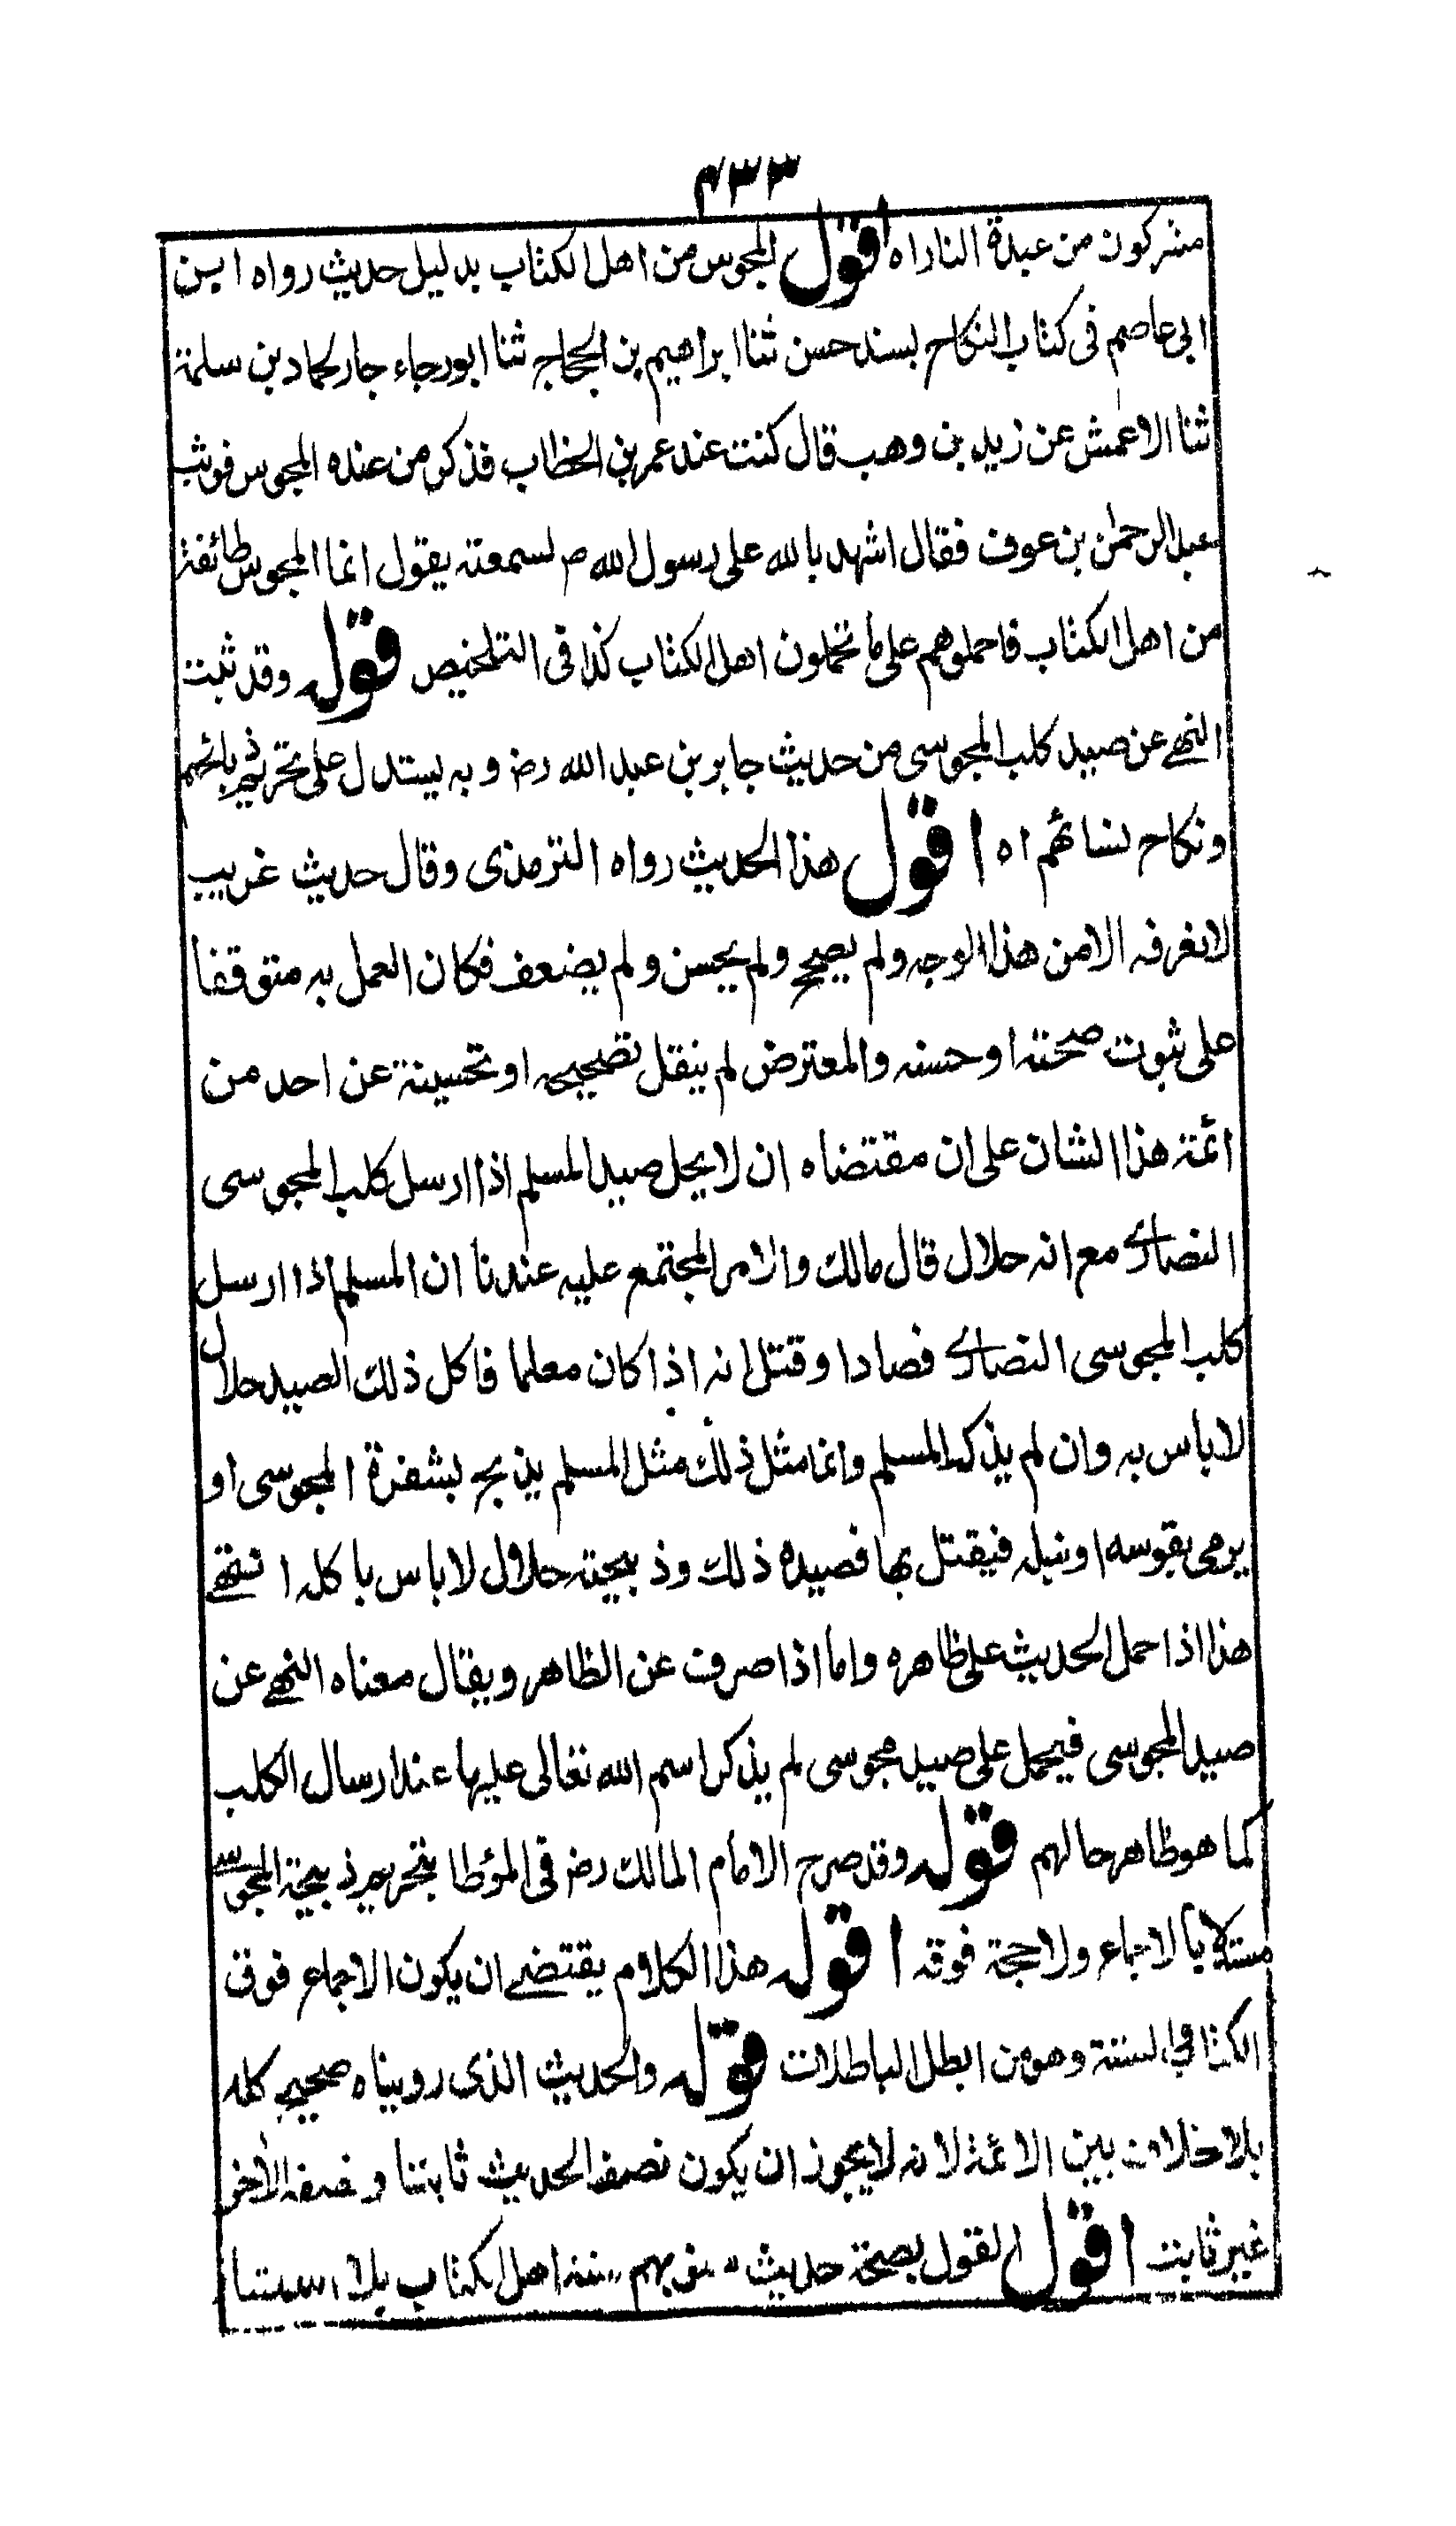 ۴۳۳
مشركون من عبدة النار اه اقول المجوس من اهل الكتاب بدليل حديث رواه ابن
ابى عاصم فى كتاب النكاح بسند حسن ثنا ابراهيم بن الحجاج ثنا ابو رجاء جار لحماد بن سلمة
ثنا الاعمش عن زيد بن وهب قال كنت عند عمر بن الخطاب فذكر من عنده المجوس فوثب
عبد الرحمٰن بن عوف فقال اشهد بالله على رسول الله ص لسمعته يقول انما المجوس طائفة
من اهل الكتاب فاحملوهم على ما تحملون اهل الكتاب كذا فى التلخيص قوله وقد ثبت
النهے عن صيد كلب المجوسى من حديث جابر بن عبد الله رض وبه يستدل على تحريم ذبائحهم
ونكاح نسائهم اه اقول هذا الحديث رواه الترمذى وقال حديث غريب
لا نعرفه الا من هذا الوجه ولم يصحح ولم يحسن ولم يضعف فكان العمل به متوقفا
على ثبوت صحته او حسنه والمعترض لم ينقل تصحيحه او تحسينه عن احد من
ائمة هذا الشان على ان مقتضاه ان لا يحل صيد المسلم اذا ارسل كلب المجوسى
الضارے مع انه حلال قال مالك والامر المجتمع عليه عندنا ان المسلم اذا ارسل
كلب المجوسى الضارے فصاد او قتل انه اذا كان معلما فاكل ذلك الصيد حلال
لا باس به وان لم يذكه المسلم وانما مثل ذلك مثل المسلم يذبح بشفرة المجوسى او
يرمى بقوسه او نبله فيقتل بها فصيده ذلك وذبيحته حلال لا باس باكله انتهے
هذا اذا حمل الحديث على ظاهره واما اذا صرف عن الظاهر ويقال معناه النهے عن
صيد المجوسى فيحمل على صيد مجوسى لم يذكر اسم الله تعالى عليها عند ارسال الكلب
كما هو ظاهر حالهم قوله وقد صرح الامام المالك رض فى المؤطا بتحريم ذبيحة المجوسے
مستدلا بالاجماع ولا حجة فوقه اقول هذا الكلام يقتضے ان يكون الاجماع فوق
الكتاب والسنة وهو من ابطل الباطلات قوله والحديث الذى رويناه صحيح كله
بلا خلاف بين الائمة لانه لا يجوز ان يكون نصف الحديث ثابتا ونصفه الاٰخر
غير ثابت اقول القول بصحة حديث سنوا بهم سنة اهل الكتاب بلا